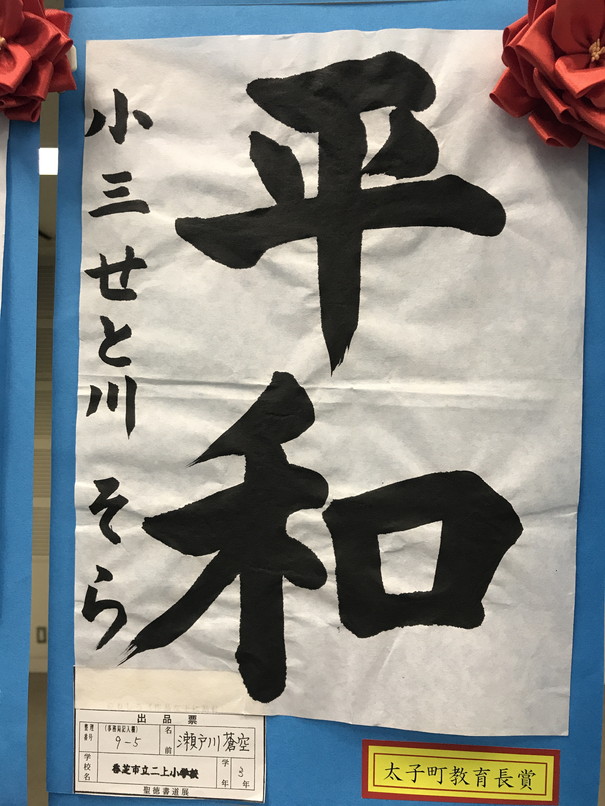 平和
小三せと川そら
出品票
整理番号
(事務局記入欄)
9-5
名前
瀬戸川蒼空
学校名
香芝市立二上小学校
学年
3年
聖徳書道展
太子町教育長賞